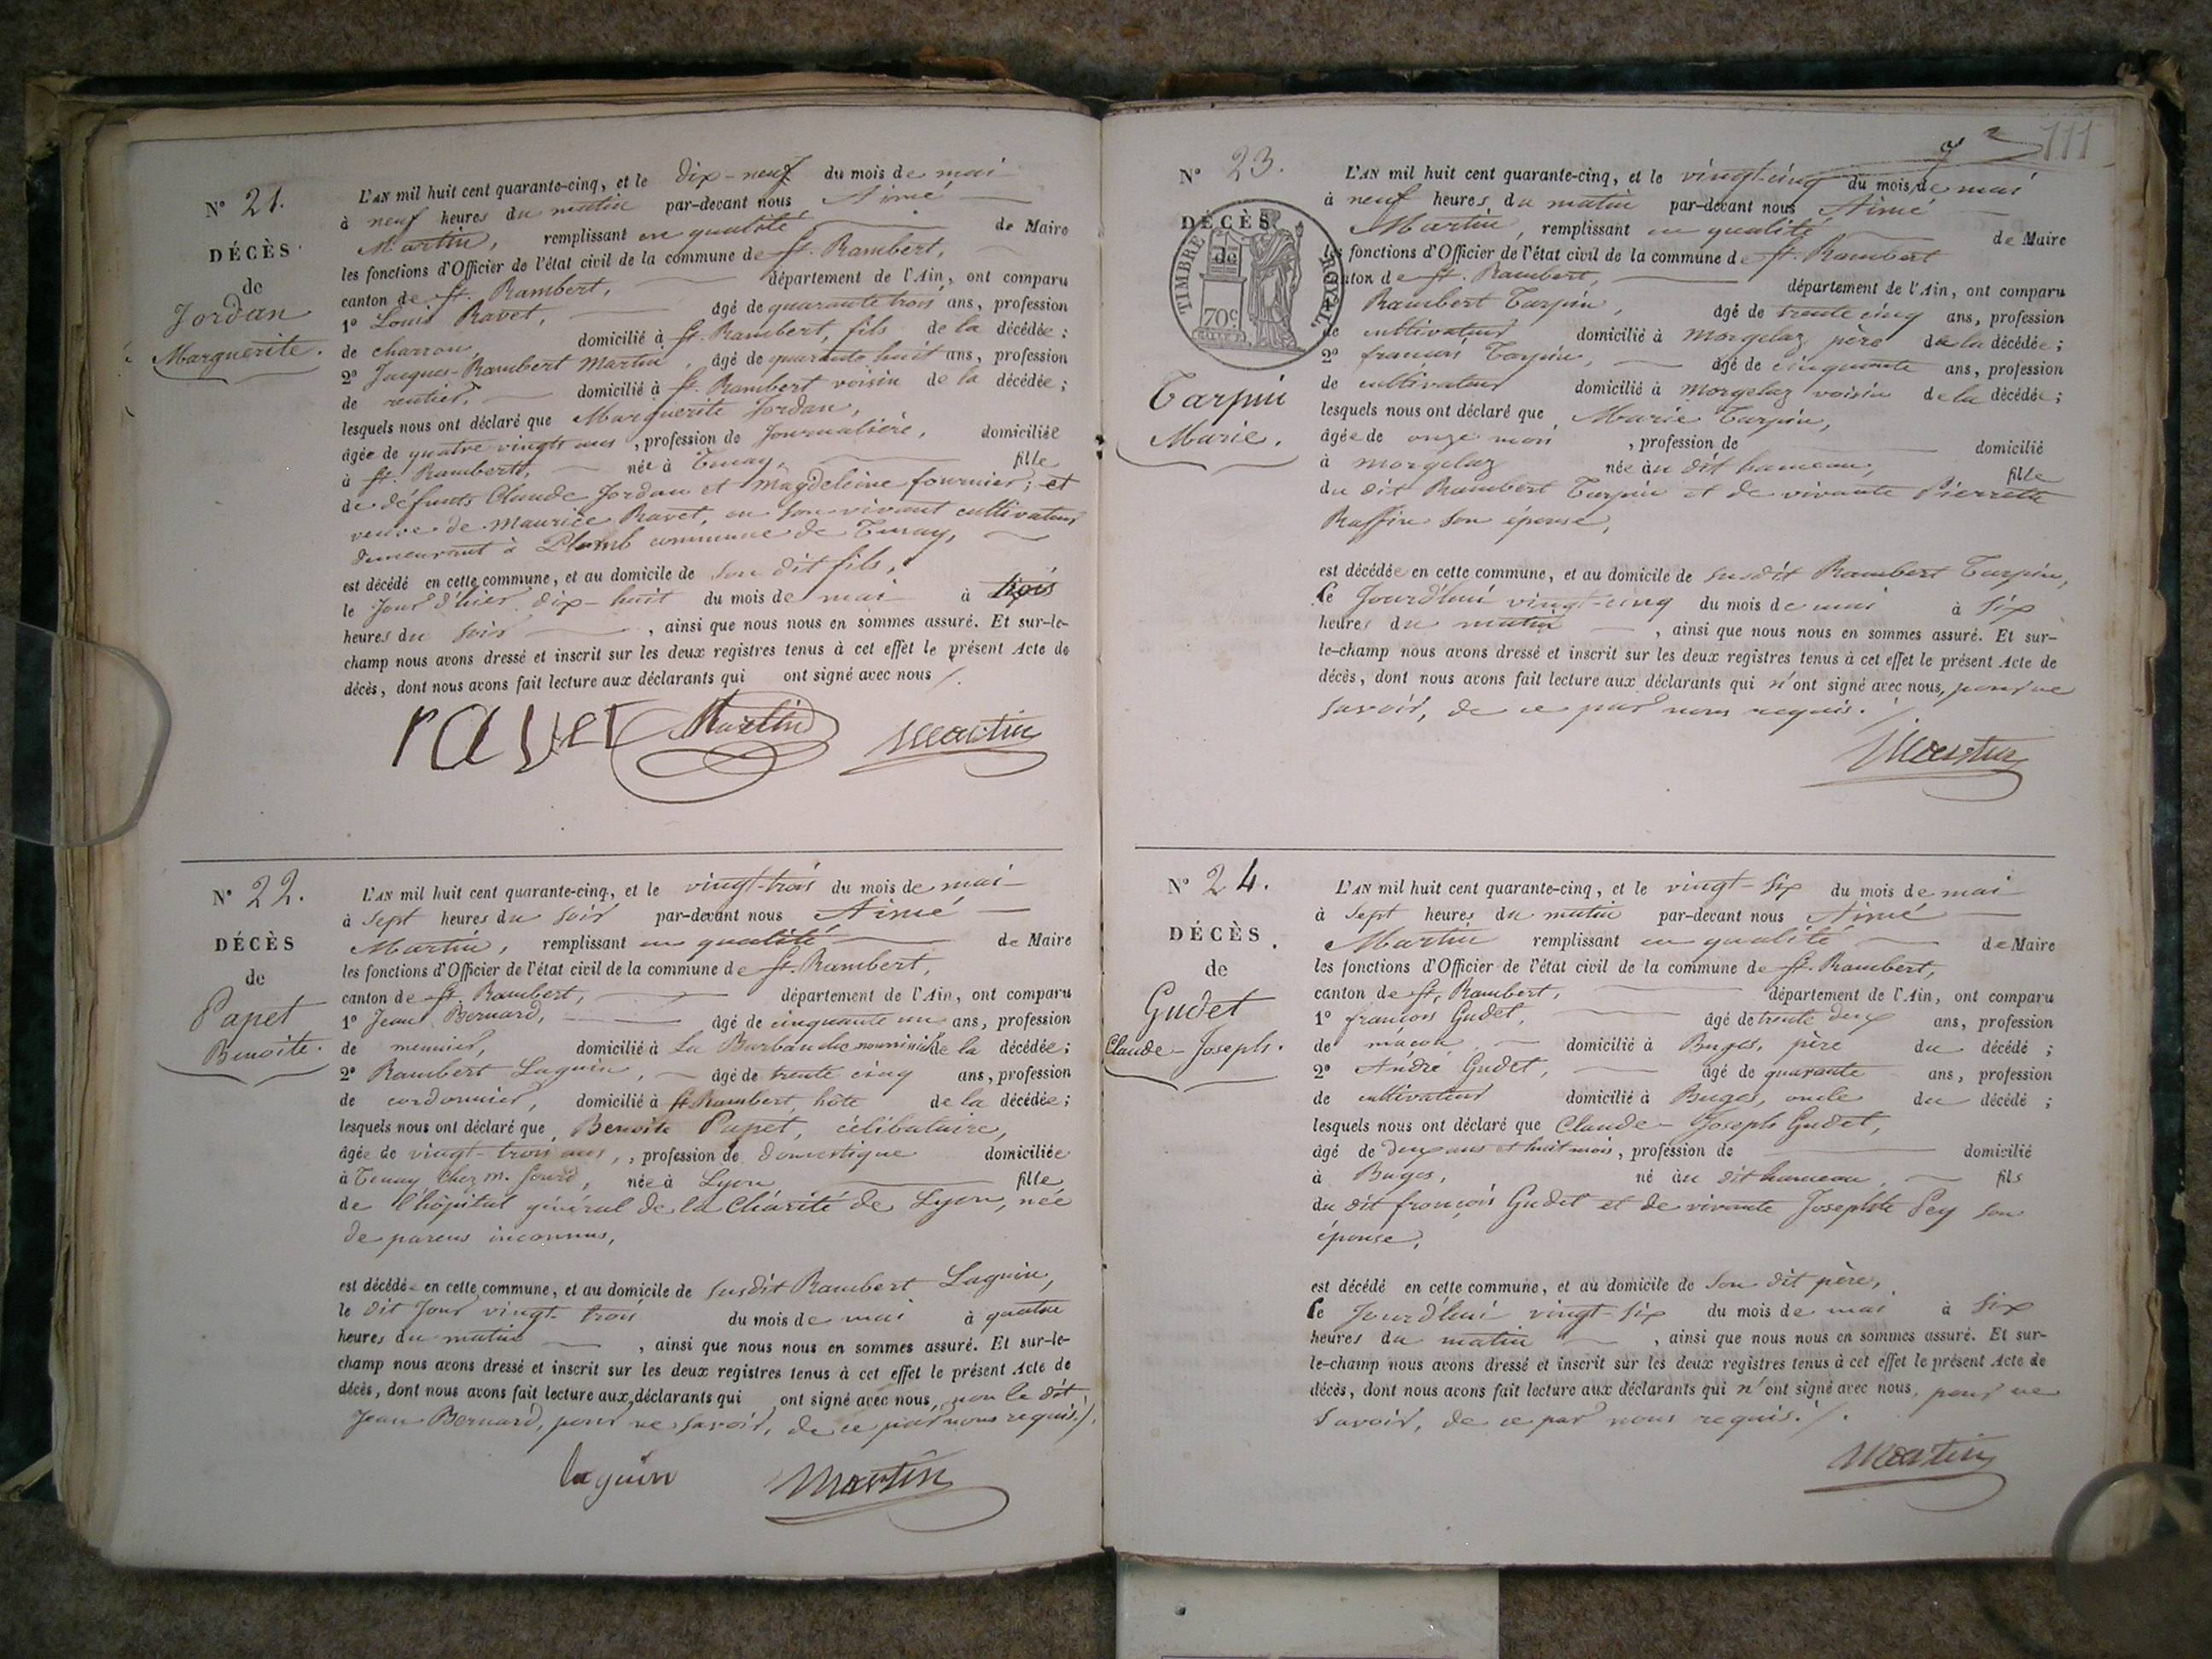 N° 21.
DÉCÈS
de
Jordan
Marguerite.
L'AN mil huit cent quarante-cinq, et le dix-neuf du mois de mai
à neuf heures du matin par-devant nous Aimé
Martin, remplissant en qualité de Maire
les fonctions d'Officier de l'état civil de la commune de St. Rambert,
canton de St. Rambert, département de l'Ain, ont comparu
1° Louis Ravet, âgé de quarante trois ans, profession
de charron, domicilié à St. Rambert, fils de la décédée ;
2° Jacques-Rambert Martin, âgé de quarante huit ans, profession
de rentier, domicilié à St. Rambert voisin de la décédée ;
lesquels nous ont déclaré que Marguerite Jordan,
âgée de quatre vingts ans, profession de Journalière, domiciliée
à St. Rambert, née à Tenay, fille
de défunts Claude Jordan et Magdeleine fournier ; et
veuve de Maurice Ravet, en son vivant cultivateur
demeurant à Plomb commune de Tenay,
est décédé en cette commune, et au domicile de son dit fils,
le Jour d'hier dix-huit du mois de mai à trois
heures du soir, ainsi que nous nous en sommes assuré. Et sur-le-
champ nous avons dressé et inscrit sur les deux registres tenus à cet effet le présent Acte de
décès, dont nous avons fait lecture aux déclarants qui ont signé avec nous /.
ravet Martin Martin
N° 22.
DÉCÈS
de
Papet
Benoite.
L'AN mil huit cent quarante-cinq, et le vingt-trois du mois de mai
à sept heures du soir par-devant nous Aimé
Martin, remplissant en qualité de Maire
les fonctions d'Officier de l'état civil de la commune de St. Rambert,
canton de St. Rambert, département de l'Ain, ont comparu
1° Jean Bernard, âgé de cinquante un ans, profession
de meunier, domicilié à La Burbanche nourricier de la décédée ;
2° Rambert Laguin, âgé de trente cinq ans, profession
de cordonnier, domicilié à St. Rambert, hôte de la décédée ;
lesquels nous ont déclaré que Benoite Papet, célibataire,
âgée de vingt-trois ans, profession de domestique domiciliée
à Tenay chez m. Jourd, née à Lyon fille
de l'hôpital général de la Charité de Lyon, née
de parens inconnus,
est décédée en cette commune, et au domicile de susdit Rambert Laguin,
le dit Jour vingt-trois du mois de mai à quatre
heures du matin, ainsi que nous nous en sommes assuré. Et sur-le-
champ nous avons dressé et inscrit sur les deux registres tenus à cet effet le présent Acte de
décès, dont nous avons fait lecture aux déclarants qui ont signé avec nous, non le dit
Jean Bernard, pour ne savoir, de ce par nous requis ./.
laguin Martin
111
N° 23.
DÉCÈS
de
TIMBRE ROYAL
70c
Tarpin
Marie.
L'AN mil huit cent quarante-cinq, et le vingt-cinq du mois de mai
à neuf heures du matin par-devant nous Aimé
Martin, remplissant en qualité de Maire
les fonctions d'Officier de l'état civil de la commune de St. Rambert
canton de St. Rambert, département de l'Ain, ont comparu
Rambert Tarpin, âgé de trente cinq ans, profession
de cultivateur domicilié à Morgelaz père de la décédée ;
2° francois Tarpin, âgé de cinquante ans, profession
de cultivateur domicilié à Morgelaz voisin de la décédée ;
lesquels nous ont déclaré que Marie Tarpin,
âgée de onze mois, profession de domicilié
à Morgelaz née au dit hameau, fille
du dit Rambert Tarpin et de vivante Pierrette
Raffin son épouse,
est décédée en cette commune, et au domicile de susdit Rambert Tarpin,
le Jourd'hui vingt-cinq du mois de mai à six
heures du matin, ainsi que nous nous en sommes assuré. Et sur-
le-champ nous avons dressé et inscrit sur les deux registres tenus à cet effet le présent Acte de
décès, dont nous avons fait lecture aux déclarants qui n'ont signé avec nous, pour ne
savoir, de ce par nous requis. /
Martin
N° 24.
DÉCÈS
de
Gudet
Claude-Joseph.
L'AN mil huit cent quarante-cinq, et le vingt-six du mois de mai
à sept heures du matin par-devant nous Aimé
Martin remplissant en qualité de Maire
les fonctions d'Officier de l'état civil de la commune de St. Rambert,
canton de St. Rambert, département de l'Ain, ont comparu
1° françois Gudet, âgé de trente deux ans, profession
de maçon domicilié à Buges, père du décédé ;
2° André Gudet, âgé de quarante ans, profession
de cultivateur domicilié à Buges, oncle du décédé ;
lesquels nous ont déclaré que Claude-Joseph Gudet,
âgé de deux ans et huit mois, profession de domicilié
à Buges, né au dit hameau, fils
du dit françois Gudet et de vivante Josephte Pey son
épouse,
est décédé en cette commune, et au domicile de son dit père,
le Jourd'hui vingt-six du mois de mai à six
heures du matin, ainsi que nous nous en sommes assuré. Et sur-
le-champ nous avons dressé et inscrit sur les deux registres tenus à cet effet le présent Acte de
décès, dont nous avons fait lecture aux déclarants qui n'ont signé avec nous, pour ne
savoir, de ce par nous requis. /.
Martin